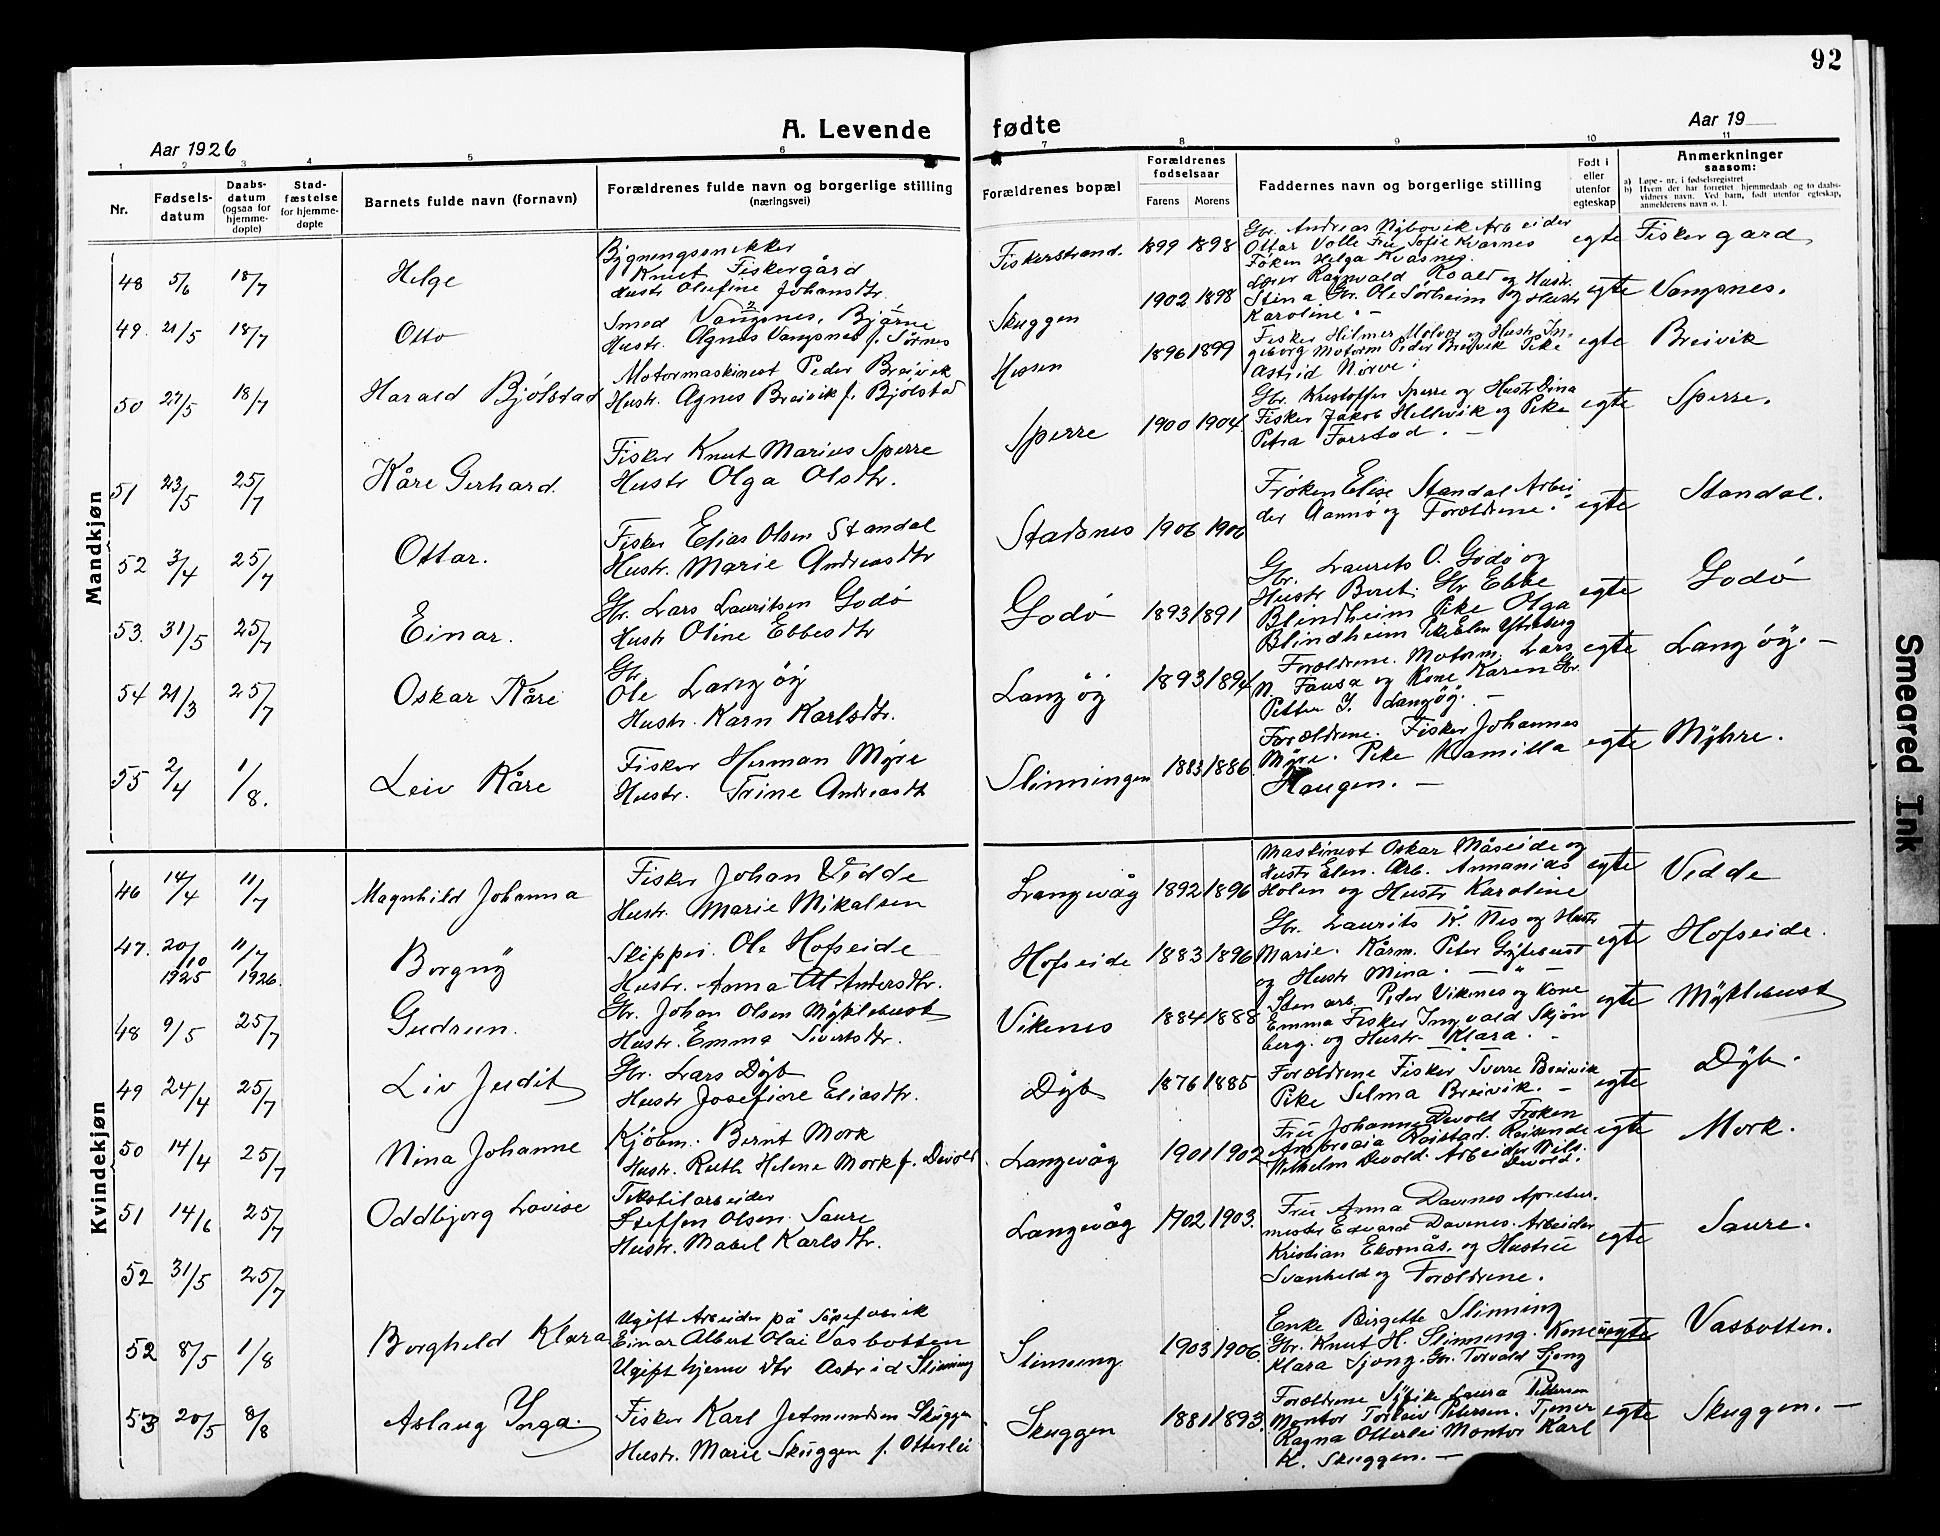 92
A. Levende fødte
Aar 1926
Aar 19
1 2 3 4 5 6 7 8 9 10 11
Nr.
Fødsels-datum
Daabs-datum (ogsaa for hjemme-døpte)
Stad-fæstelse for hjemme-døpte
Barnets fulde navn (fornavn)
Forældrenes fulde navn og borgerlige stilling (næringsvei)
Forældrenes bopæl
Forældrenes fødselsaar
Farens Morens
Faddernes navn og borgerlige stilling
Født i eller utenfor egteskap
Anmerkninger saasom:
a) Løpe-nr. i fødselsregistret
b) Hvem der har forrettet hjemmedaab og to daabs-vidners navn. Ved barn, født utenfor egteskap, anmelderens navn o. l.
Mandkjøn
48 5/6 18/7 Helge
Bygningssnekker
Knut Fiskergård
Hustr Olufine Johansdtr.
Fiskerstrand. 1899 1898
Gbr. Andreas Nybovik Arbeider
Ottar Volle Fru Sofie Kvasnes
Føken Helga Kvasnes.
egte Fiskergard
49. 21/5 18/7 Otto
Smed Vangsnes, Bjarne
Hustr. Agnes Vangsnes f. Sørnes
Skuggen 1902 1898
Lærer Ragnvald Roald og Hustr.
Stina Gbr. Ole Sørheim og Hustr
Karoline. —
egte Vangsnes.
50 27/5 18/7 Harald Bjølstad
Motormaskinest Peder Breivik
Hustr. Agnes Breivik f. Bjølstad
Hessen 1896 1899
Fisker Hilmer Molvær og Hustr. In-
geborg Motorm Peder Breivik Pike
Astrid Nørve.
egte Breivik
51 23/5 25/7 Kåre Gerhard.
Fisker Knut Marius Sperre
Hustr Olga Olsdtr.
Sperre 1900 1904
Gbr. Kristoffer Sperre og Hustr Dina
Fisker Jakob Hellevik og Pike
Petra Forstad. —
egte Sperre.
52 3/4 25/7 Ottar.
Fisker Elias Olsen Standal
Hustr. Marie Andreasdtr
Stadsnes 1906 1906
Frøken Elise Standal Arbei-
der Aannø og Forældrene.
egte Standal.
53. 31/5 25/7 Einar.
Gbr. Lars Lauritsen Godø
Hustr Oline Ebbesdtr
Godø 1893 1891
Gbr. Laurits O. Godø og
Hustr Beret. Gbr Ebbe
Blindheim Pike Olga
Blindheim Pike Elen Ytreberg
egte Godø
54 21/3 25/7 Oskar Kåre
Gbr
Ole Langøy
Hustr. Karn Karlsdtr.
Langøy 1893 1894
Forældrene. Motorm. Lars
N. Fausa og Kone Karen Gbr.
Petter I. Langøy. —
egte Langøy. —
55 2/4 1/8. Leiv Kåre
Fisker Herman Myre
Hustr. Trine Andreasdtr
Slinningen 1883 1886
Forældrene. Fisker Johannes
Myre. Pike Kamilla
Haugen. —
egte Myhre.
Kvindekjøn
46 14/4 11/7 Magnhild Johanna
Fisker Johan Vedde
Hustr. Marie Mikalsen
Langevåg 1892 1896
Maskinest Oskar Måseide og
Hustr Elen. Arb. Annanias
Holen og Hustr Karoline
egte Vedde
47. 20/10 1925 11/7 1926. Borgny
Skipper. Ole Hofseide
Hustr. Anna M Andersdtr.
Hofseide 1883 1896
Gbr. Laurits K. Nes og Hustr
Marie. Kårm. Peter Gytebust
og Hustr Mina. — " —
egte Hofseide.
48 9/5 25/7 Gudrun.
Gbr. Johan Olsen Myklebust
Hustr. Emma Sivertsdtr.
Vikenes 1884 1888
Sten arb. Peder Vikenes og Kone
Emma Fisker Ingvald Skjøn
berg. og Hustr Klara. —
egte Myklebust
49 24/4 25/7 Liv Judit
Gbr. Lars Dyb
Hustr Josefine Eliasdtr.
Dyb 1876 1885
Forældrene Fisker Sverre Breivik
Pike Selma Breivik. —
egte Dyb.
50 14/4 25/7 Nina Johanne
Kjøbm. Bernt Mork
Hustr. Ruth Helene Mork f. Devold
Langevåg 1901 1902
Fru Johanne Devold Frøken
Reisende
Wilhelm Devold. Arbeider Wilh.
Devold.
egte Mork.
51 14/6 25/7 Oddbjørg Lovise
Tekstilarbeider
Steffen Olsen Saure
Hustr. Mabel Karlsdtr.
Langevåg 1902 1903.
Fru Anna Davenes Apretur-
mester Edvard Davenes. Arbeider
Kristian Ekornås. og Hustru
Svanheld og Forældrene.
egte Saure.
52 31/5 25/7
52 8/5 1/8 Borgheld Klara
Ugift Arbeider på Såpefabrik
Einar Albert Olai Vasbotten
Ugift hjemv dtr Astrid Slinning
Slinning 1903 1906.
Enke Birgette Slinning
Gbr. Knut H. Slinning. Kone
Klara Sjong. Gbr. Torvald Sjong
uegte Vasbotten.
53 20/5 8/8 Aslaug Inga.
Fisker Karl Jetmundsen Skuggen
Hustr. Marie Skuggen f. Otterlei
Skuggen 1881 1893.
Forældrene Sypike Laura Petersen
Montør Torleiv Petersen. Tjener
Ragna Otterlei Montør Karl
K. Skuggen. —
egte Skuggen. —
Smeared Ink